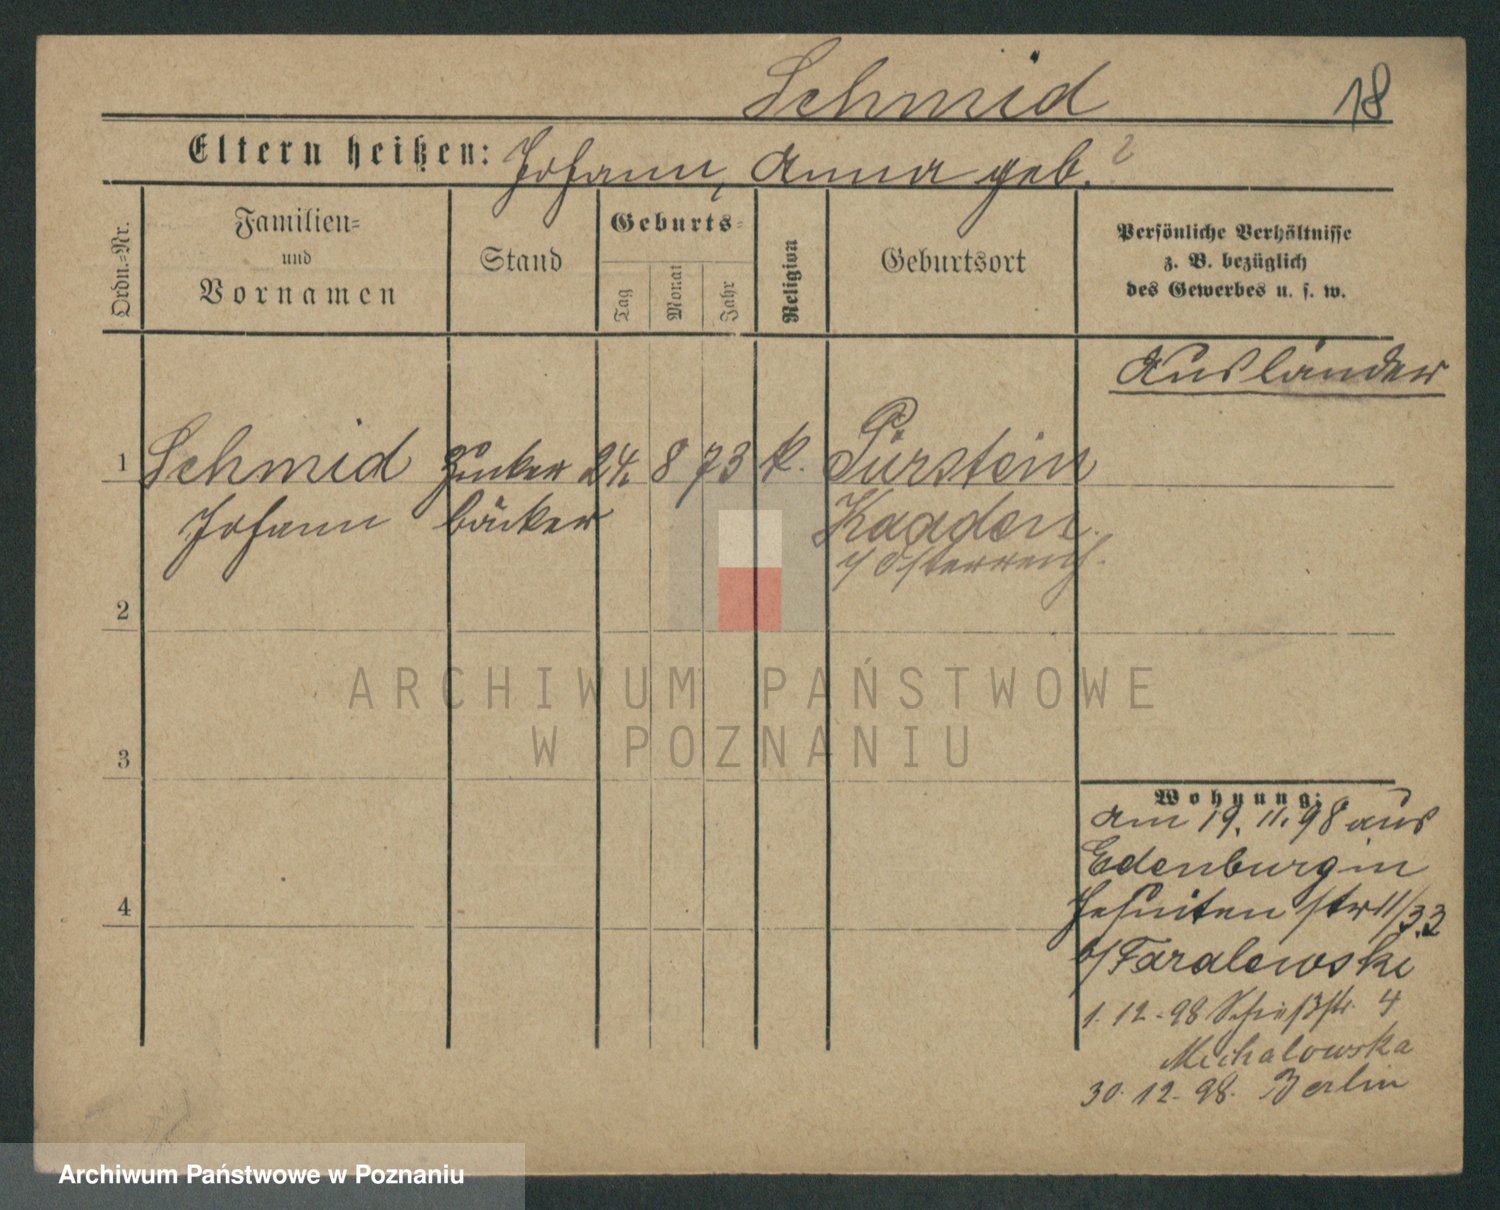 Schmid
18
Eltern heißen: Johann, Anna geb. ?
Ordn.-Nr.
Familien-
und
Vornamen
Stand
Geburts-
Tag
Monat
Jahr
Religion
Geburtsort
Persönliche Verhältnisse
z. B. bezüglich
des Gewerbes u. s. w.
Ausländer
1 Schmid Zucker 24. 8 73 k. Pürstein
Johann bäcker Kaaden
i/ Österreich.
2
3
4
ARCHIWUM PAŃSTWOWE
W POZNANIU
Wohnung:
am 19. 11. 98 aus
Edenburg in
Jesuiten str 11/33
b/ Taralewski
1. 12. 98 Schießstr. 4
Michalowska
30. 12. 98. Berlin
Archiwum Państwowe w Poznaniu